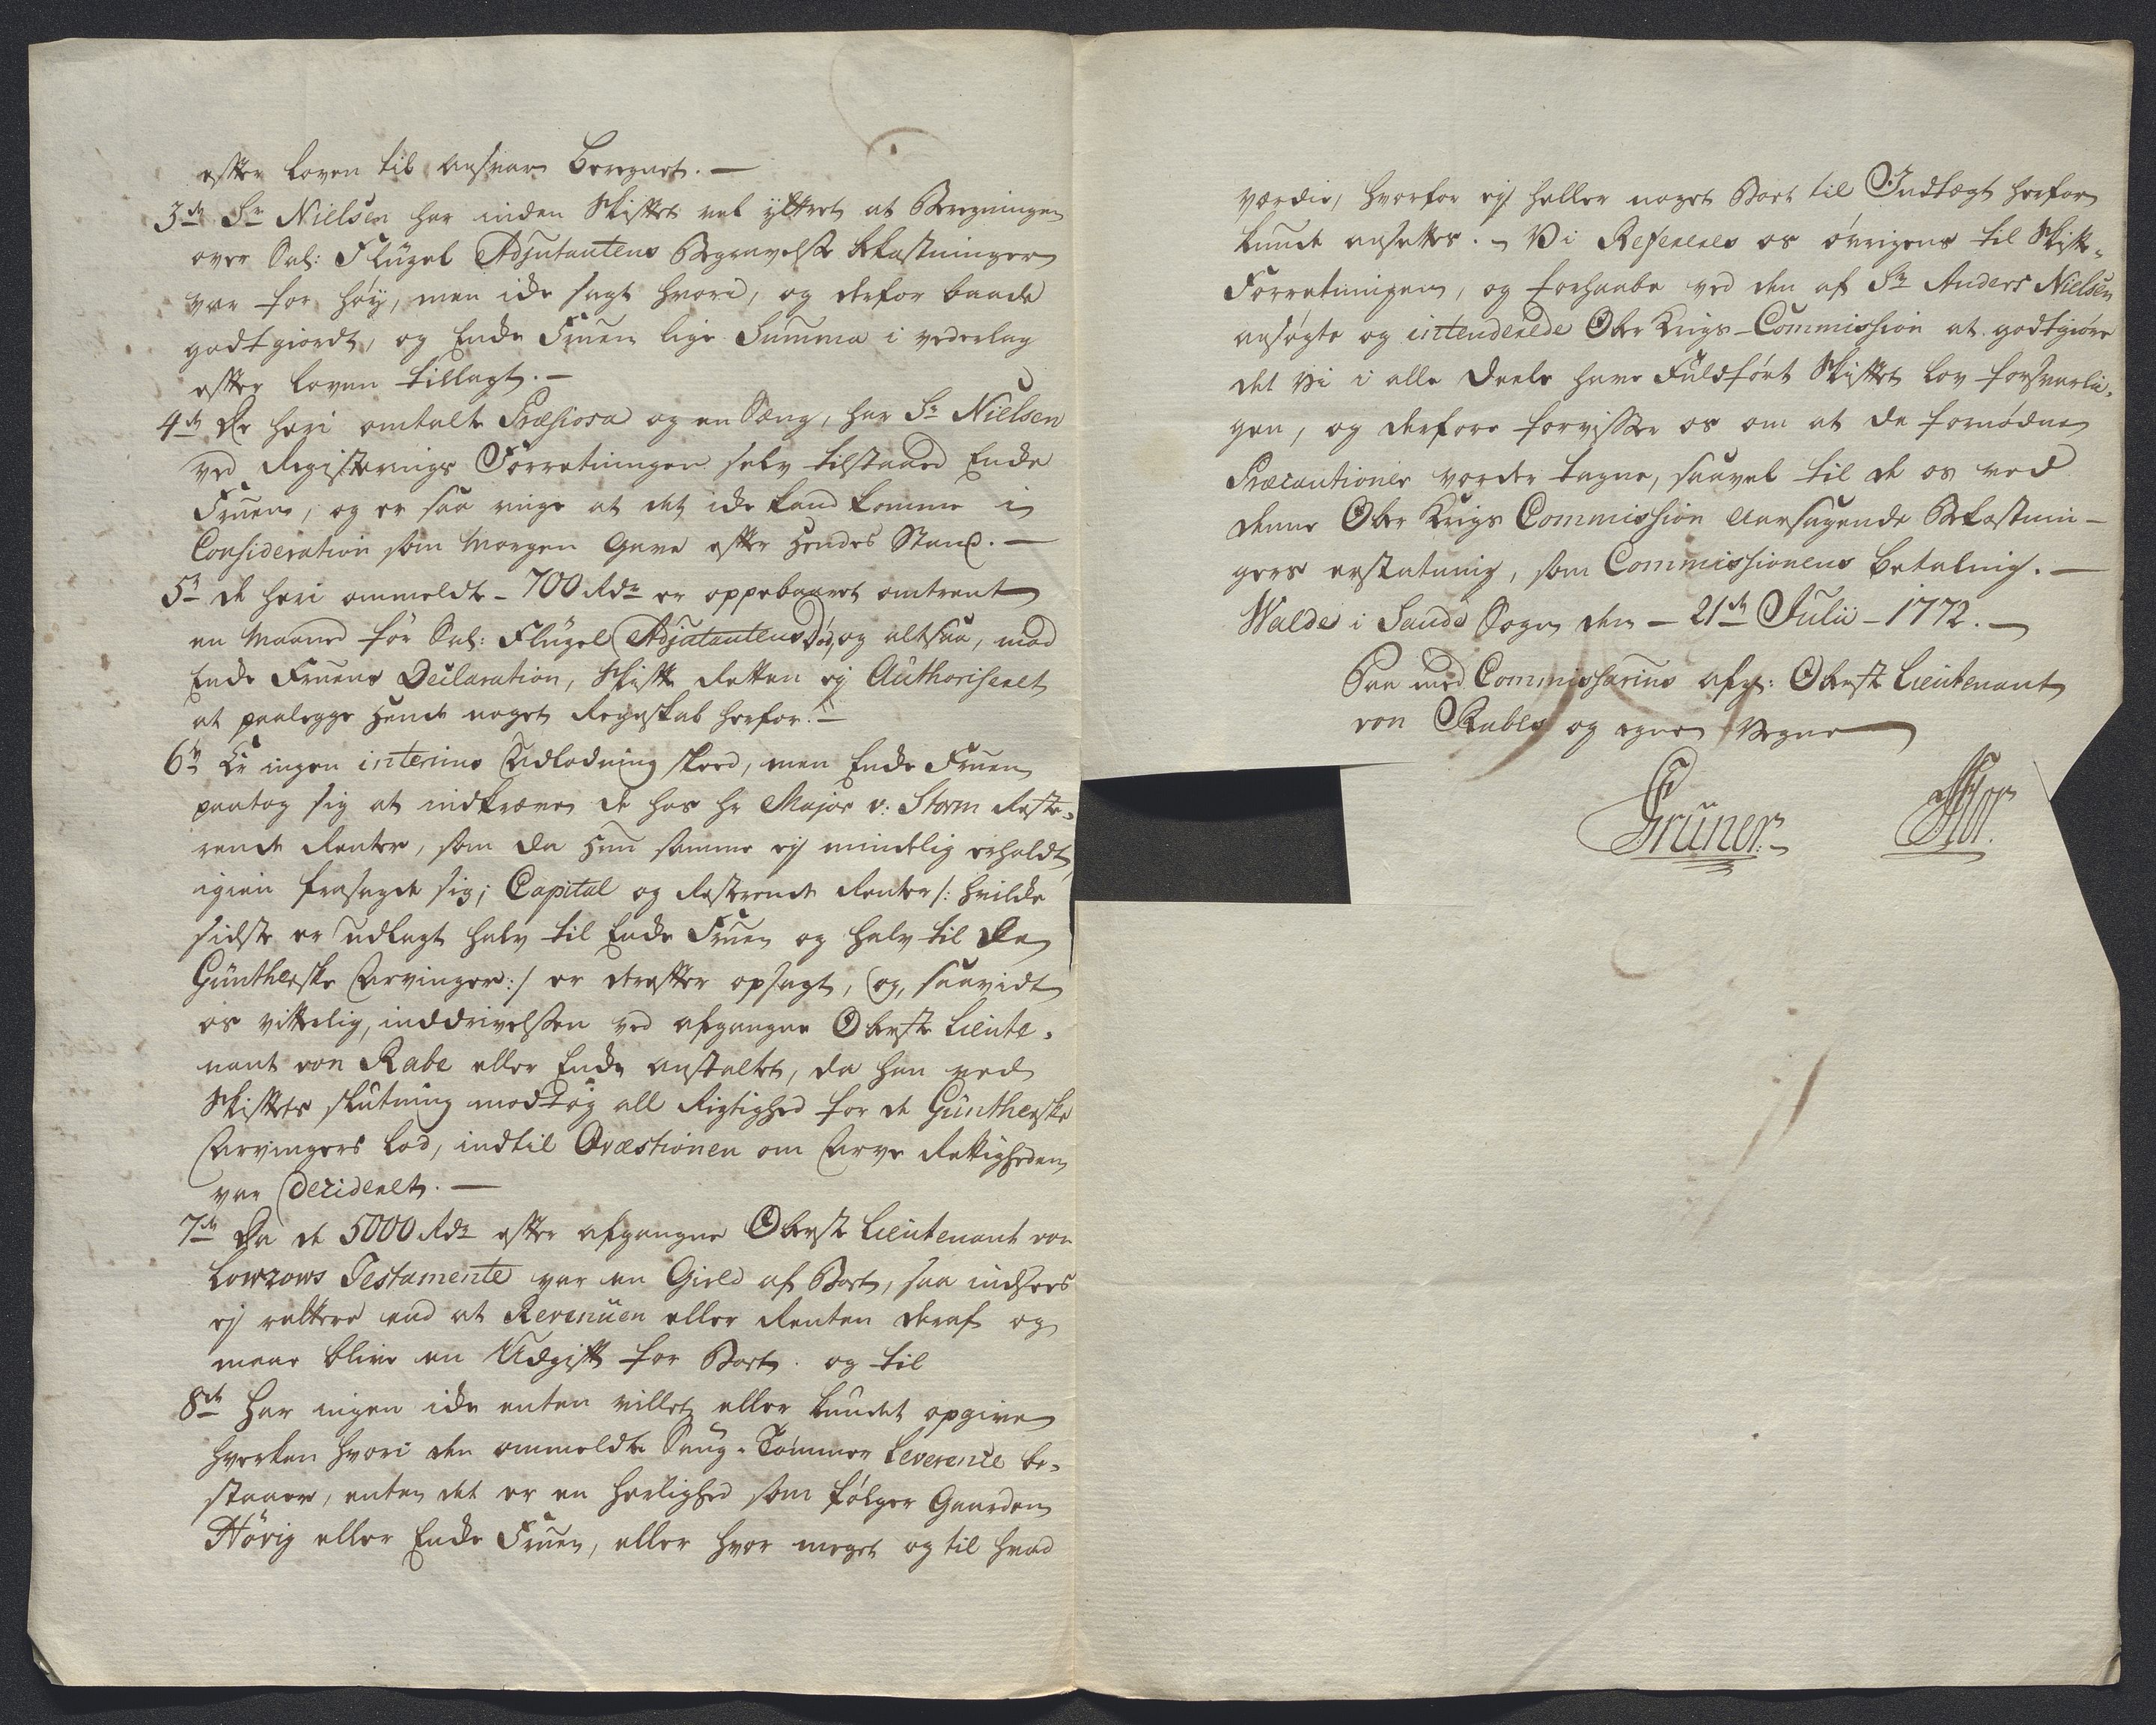 efter loven til ansvar beregnet. —
3de Sr Nielsen har inden Skiftet vel yttret at Beregningen
over Sal: Flügel Adjutantens Begravelse bekostninger
var for høy, men icke sagt hvori, og derfor baade
godtgiordt, og Encke Fruen lige Summa i vederlag
efter loven tillagt. —
4de De heri omtalte Præsiosa og en Seng, har Sr Nielsen
ved Registerings Forretningen selv tilstaaed Encke
Fruen, og er saa ringe at det icke kand komme i
Consideration som Morgen Gave efter hendes Stand. —
5te de heri ommeldte — 700 Rdr er oppebaaret omtrent
en Maaned før Sal: Flügel Adjutantens Død, og altsaa, mod
Encke Fruens Declaration, Skifte Retten ej Authoriseret
at paalegge hende noget Regnskab herfor. —
6te Er ingen interims Udlodning skeed, men Encke Fruen
paatog sig at indkræve de hos hr Major v: Storm Reste=
rende Renter, som da hun samme ej mindelig erholdt,
igien frasagde sig; Capital og Resterende Renter /: hvilke
sidste er udlagt halv til Encke Fruen og halv til De
Güntherske Arvinger :/ er derefter opsagt, og, saavidt
os vitterlig, inddrivelsen ved afgangne Oberste Lieute=
nant von Rabe eller Encke anstaltet, da han ved
Skiftets slutning modtog all Rigtighed for de Güntherske
Arvingers Lod, indtil Qvæstionen om Arve Rettigheden
var Decideret. —
7de Da de 5000 Rdr efter afgangne Oberst Lieutenant von
Lowzows Testamente var en Gield af Boet, saa indsees
ej rettere end at Revenüen eller Renten deraf og
maae blive en Udgift for Boet. og til
8de Har ingen icke enten villet eller kundet opgive
hverken hvori den ommeldte Saug-Tømmer Leverence be=
staaer, enten det er en herlighed som følger Gaarden
Hørig eller Encke Fruen, eller hvor meget og til hvad
værdie, hvorfor ej heller noget Boet til Indtægt herfor
kunde ansettes. — Vi Refererer os øvrigens til Skifte=
Forretningen, og forhaaber ved den af Sr Anders Nielsen
ansøgte og intenderede Ober Krigs-Commission at godtgiøre
det vi i alle Deele have Fuldført Skiftet lov forsvarli=
gen, og derfore forvisser os om at de fornødne
Præcautioner vorder tagne, saavel til de os ved
denne Ober Krigs Commission Aarsagende Bekostnin=
gers erstatning, som Commissionens betaling. —
Walde i Sande Sogn den — 21de Julii — 1772. —
Paa med Commissarius afg: Oberste Lieutenant
von Rabes og egne Vegne
Grüner. Flor.